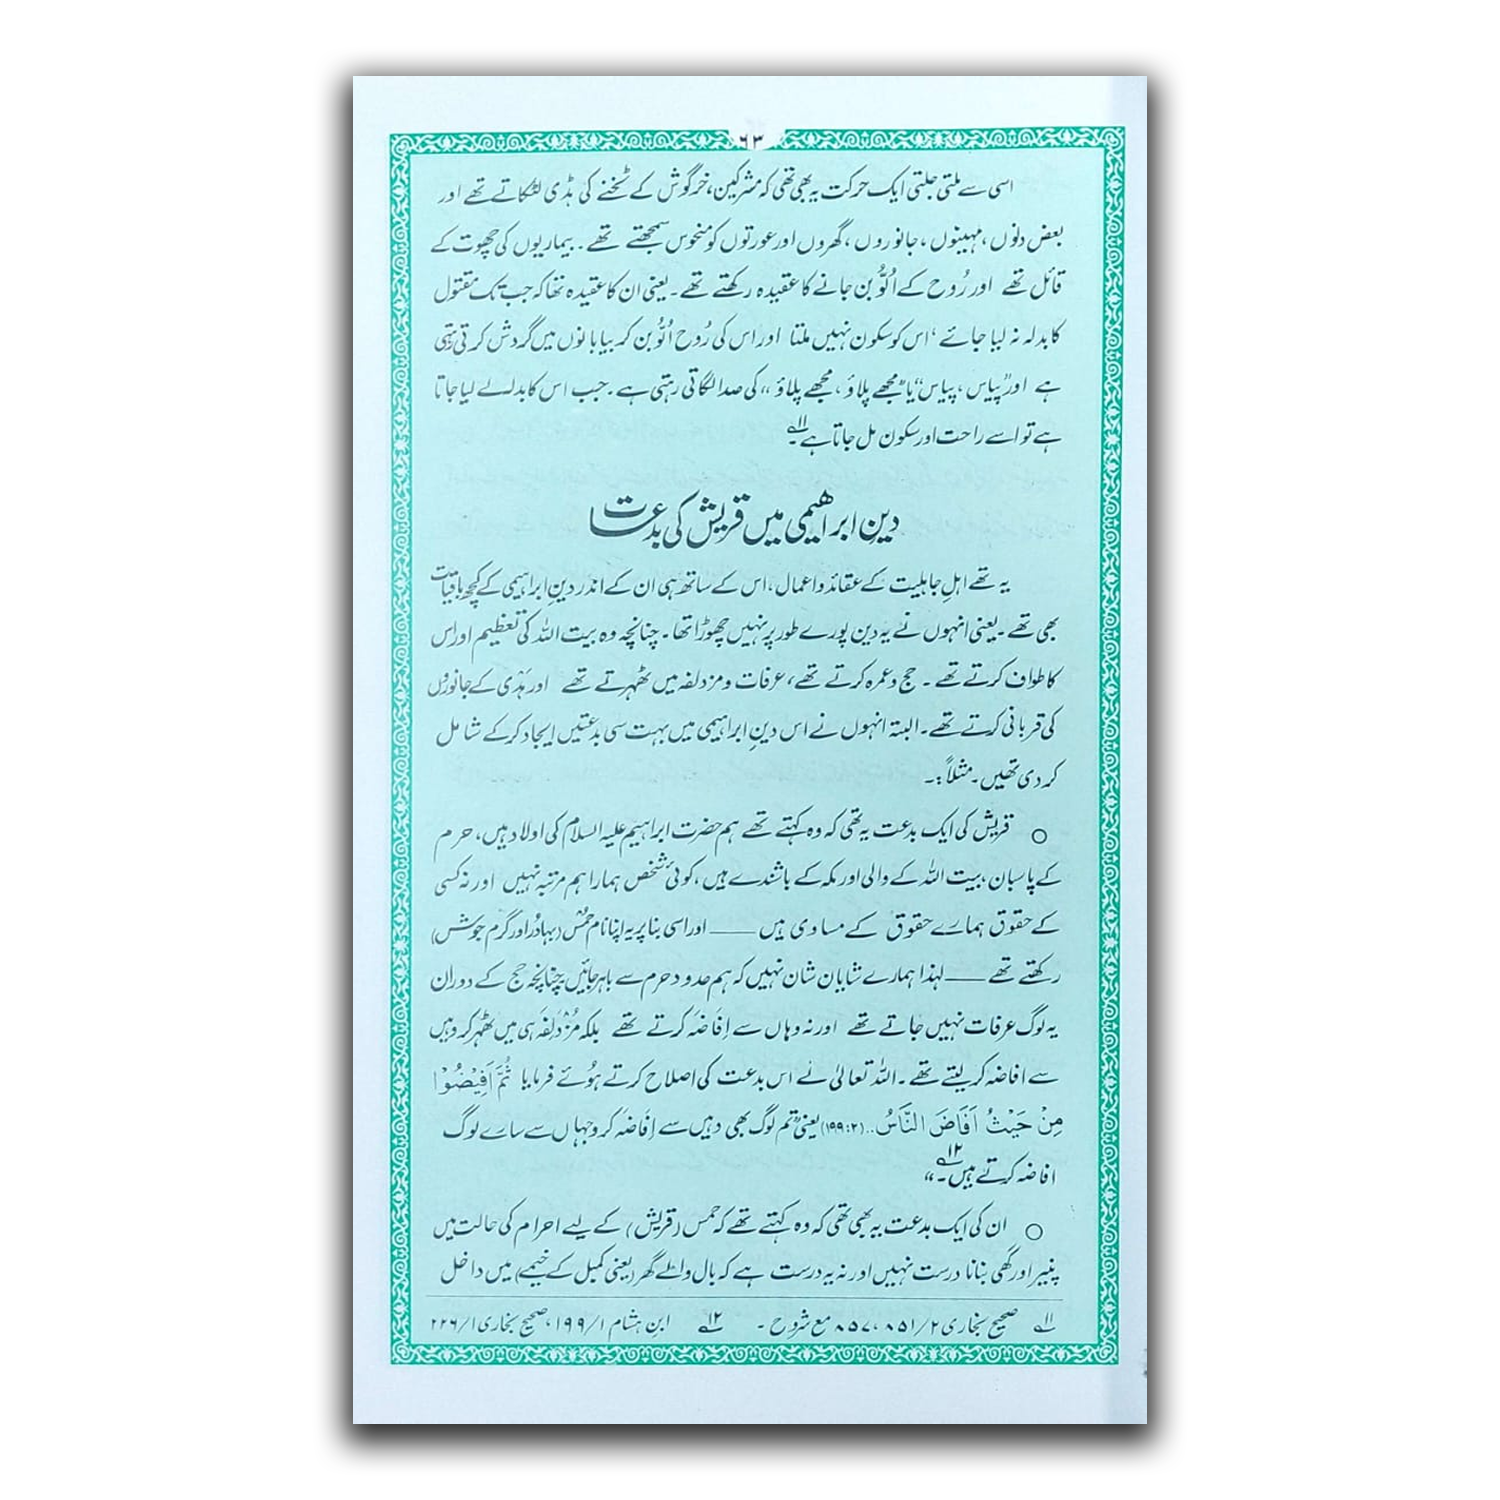 ۶۳
اسی سے ملتی جلتی ایک حرکت یہ بھی تھی کہ مشرکین، خرگوش کے ٹخنے کی ہڈی لٹکاتے تھے اور
بعض دنوں، مہینوں، جانوروں، گھروں اور عورتوں کو منحوس سمجھتے تھے۔ بیماریوں کی چھوت کے
قائل تھے اور رُوح کے اُلّو بن جانے کا عقیدہ رکھتے تھے۔ یعنی ان کا عقیدہ تھا کہ جب تک مقتول
کا بدلہ نہ لیا جائے، اس کو سکون نہیں ملتا اور اس کی رُوح اُلّو بن کر بیابانوں میں گردش کرتی رہتی
ہے اور "پیاس، پیاس" یا "مجھے پلاؤ، مجھے پلاؤ" کی صدا لگاتی رہتی ہے۔ جب اس کا بدلہ لے لیا جاتا
ہے تو اسے راحت اور سکون مل جاتا ہے۔ ؎۱۱
دینِ ابراہیمی میں قریش کی بدعات
یہ تھے اہلِ جاہلیت کے عقائد و اعمال، اس کے ساتھ ہی ان کے اندر دینِ ابراہیمی کے کچھ باقیات
بھی تھے۔ یعنی انہوں نے یہ دین پورے طور پر نہیں چھوڑا تھا۔ چنانچہ وہ بیت اللہ کی تعظیم اور اس
کا طواف کرتے تھے۔ حج و عمرہ کرتے تھے، عرفات و مزدلفہ میں ٹھہرتے تھے اور ہَدْی کے جانوروں
کی قربانی کرتے تھے۔ البتہ انہوں نے اس دینِ ابراہیمی میں بہت سی بدعتیں ایجاد کرکے شامل
کر دی تھیں۔ مثلاً :۔
○ قریش کی ایک بدعت یہ تھی کہ وہ کہتے تھے ہم حضرت ابراہیم علیہ السلام کی اولاد ہیں، حرم
کے پاسبان، بیت اللہ کے والی اور مکہ کے باشندے ہیں، کوئی شخص ہمارا ہم مرتبہ نہیں اور نہ کسی
کے حقوق ہمارے حقوق کے مساوی ہیں ــــــ اور اسی بنا پر یہ اپنا نام حُمْس (بہادر اور گرم جوش)
رکھتے تھے ــــــ لہٰذا ہمارے شایانِ شان نہیں کہ ہم حدودِ حرم سے باہر جائیں چنانچہ حج کے دوران
یہ لوگ عرفات نہیں جاتے تھے اور نہ وہاں سے اِفَاضَہ کرتے تھے بلکہ مُزْدَلِفَہ ہی میں ٹھہر کر وہیں
سے افاضہ کر لیتے تھے۔ اللہ تعالیٰ نے اس بدعت کی اصلاح کرتے ہُوئے فرمایا ثُمَّ اَفِيْضُوْا
مِنْ حَيْثُ اَفَاضَ النَّاسُ.. (۱۹۹:۲) یعنی "تم لوگ بھی وہیں سے اِفَاضَہ کرو جہاں سے سارے لوگ
افاضہ کرتے ہیں۔" ؎۱۲
○ ان کی ایک بدعت یہ بھی تھی کہ وہ کہتے تھے کہ حمس (قریش) کے لیے احرام کی حالت میں
پنیر اور گھی بنانا درست نہیں اور نہ یہ درست ہے کہ بال والے گھر (یعنی کمبل کے خیمے) میں داخل
؎۱۱ صحیح بخاری ۲/ ۸۵۱، ۸۵۷ مع شروح۔ ؎۱۲ ابن ہشام ۱/ ۱۹۹، صحیح بخاری ۱/ ۲۲۶